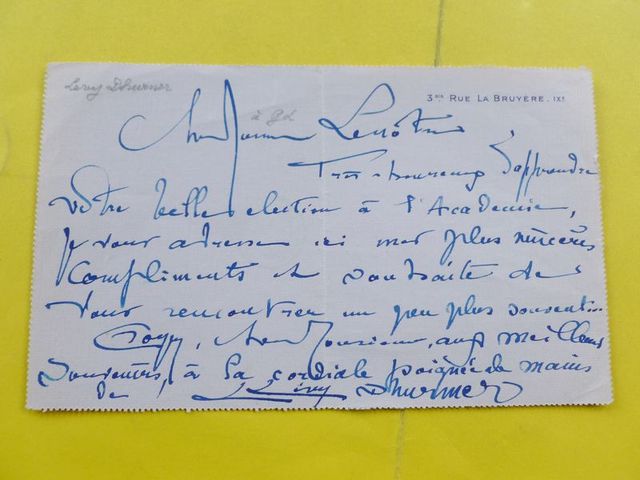 Levy Dhurmer
3 BIS RUE LA BRUYÈRE. IXE
à GL
Cher Monsieur Lenôtre
Très heureux d'apprendre
votre belle election à l'Academie,
je vous adresse ici mes plus sincères
compliments et souhaite de
vous rencontrer un peu plus souvent.
Croyez, cher Monsieur, aux meilleurs
souvenirs, à la cordiale poignée de mains
de Lévy Dhurmer